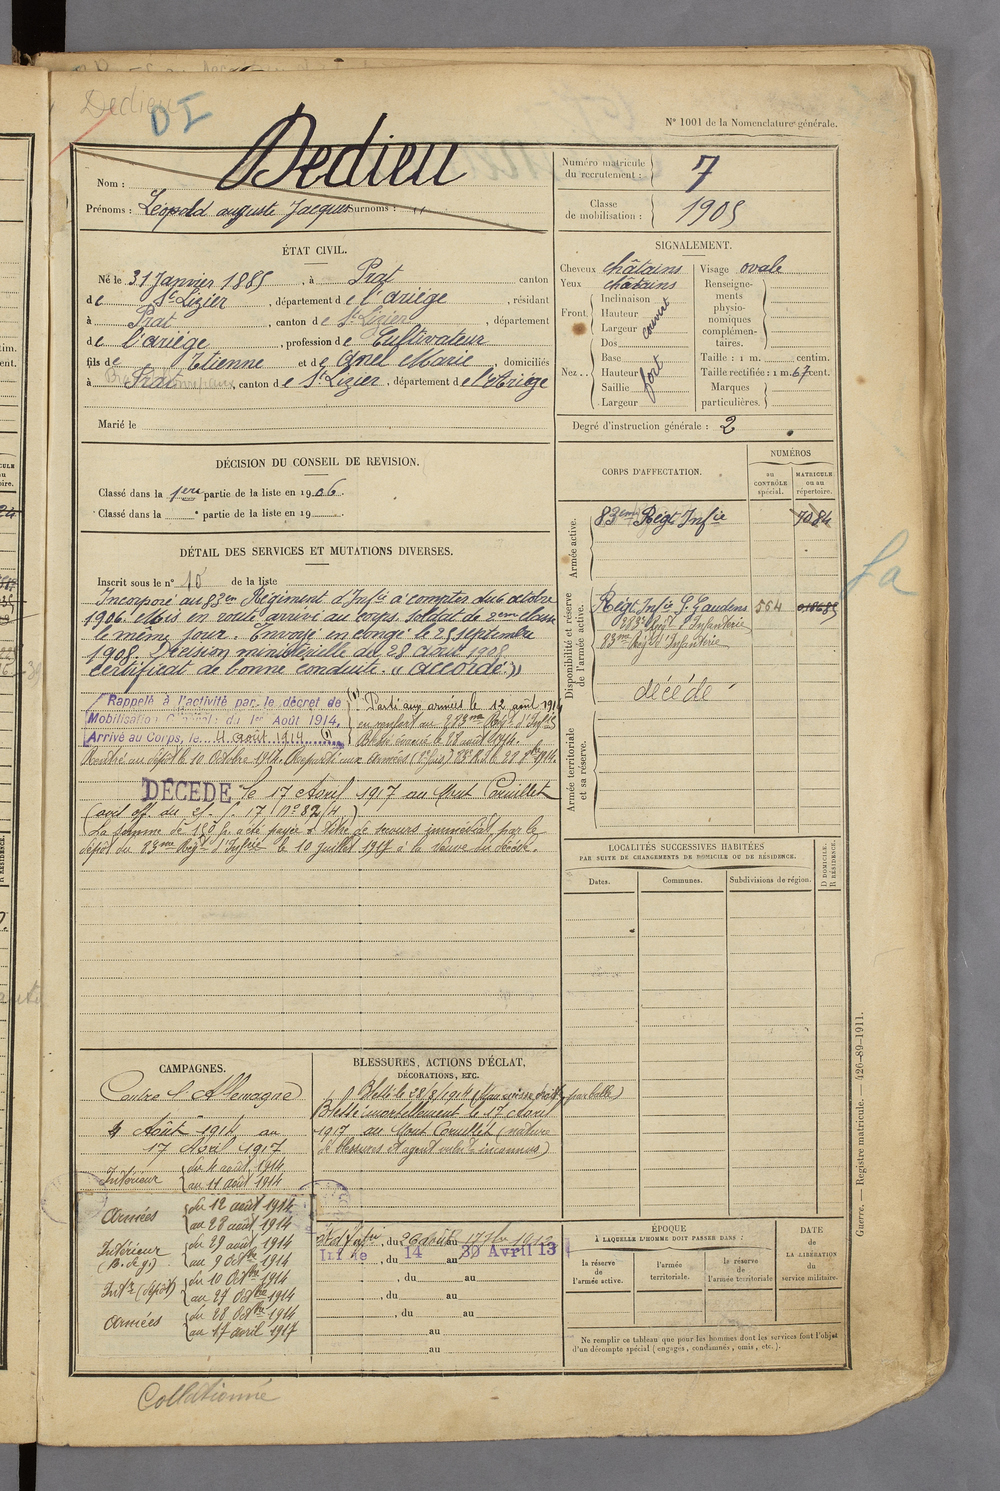 Dedieu
DI
N° 1001 de la Nomenclature générale.
Nom : Dedieu
Prénoms : Léopold auguste Jacques Surnoms : "
Numéro matricule du recrutement : 7
Classe de mobilisation : 1905
ÉTAT CIVIL.
Né le 31 Janvier 1885, à Prat canton
de St Lizier, département de l'ariège, résidant
à Prat, canton de St Lizier, département
de l'ariège, profession de Cultivateur
fils de Etienne et de Anel Marie, domiciliés
à Prat, canton de St Lizier, département de l'Ariège
Marié le
SIGNALEMENT.
Cheveux châtains
Yeux châtains
Front. Inclinaison
Hauteur
Largeur couvert
Nez... Dos
Base
Hauteur fort
Saillie
Largeur
Visage ovale
Renseignements physionomiques complémentaires.
Taille : 1 m. centim.
Taille rectifiée : 1 m. 67 cent.
Marques particulières.
Degré d'instruction générale : 2
DÉCISION DU CONSEIL DE REVISION.
Classé dans la 1ere partie de la liste en 1906.
Classé dans la partie de la liste en 19
DÉTAIL DES SERVICES ET MUTATIONS DIVERSES.
Inscrit sous le n° 10 de la liste
Incorporé au 83em Régiment d'Infie à compter du 6 octobre
1906. Mis en route arrivé au corps Soldat de 2em classe
le même jour. Envoyé en congé le 25 septembre
1908. Décision ministérielle du 28 août 1908
certificat de bonne conduite. « accordé »
Rappelé à l'activité par le décret de
Mobilisation Générale du 1er Août 1914,
Arrivé au Corps, le 4 août 1914 (1)
(1) Parti aux armées le 12 août 1914
en renfort au 283me Régt d'Infie
Blessé évacué le 28 août 1914.
Rentré au dépôt le 10 Octobre 1914.
DÉCÉDÉ le 17 Avril 1917 au Mont Cornillet
La somme de 150 f. a été payée à titre de secours immédiat, par le
dépôt du 83me Régt d'Infrie le 10 juillet 1917 à la veuve du décédé.
CORPS D'AFFECTATION.
NUMÉROS
au CONTRÔLE spécial.
MATRICULE ou au répertoire.
Armée active.
83em Régt Infie 7084
Disponibilité et réserve de l'armée active.
Régt Infie St Gaudens 564
283e Regt d'Infanterie
83me Reg d'Infanterie
décédé
Armée territoriale et sa réserve.
La
LOCALITÉS SUCCESSIVES HABITÉES
PAR SUITE DE CHANGEMENTS DE DOMICILE OU DE RÉSIDENCE.
Dates.
Communes.
Subdivisions de région.
D DOMICILE.
R RÉSIDENCE.
CAMPAGNES.
Contre l'Allemagne
4 Août 1914 au
17 Avril 1917
Intérieur du 4 août 1914
au 11 août 1914
Armées du 12 août 1914
au 28 août 1914
Intérieur (B. de g.) du 29 août 1914
au 9 Octbre 1914
Intr (dépôt) du 10 Octbre 1914
au 27 Octbre 1914
Armées du 28 Octbre 1914
au 17 avril 1917
BLESSURES, ACTIONS D'ÉCLAT,
DÉCORATIONS, ETC.
Blessé le 28/8/1914 (Main droite par balle)
Blessé mortellement le 17 Avril
1917 au Mont Cornillet (nature
de blessures et agent inconnus)
, du 26 août au 17 1912
Inf ie, du 14 au 30 Avril 13
, du au
, du au
, du au
au
au
ÉPOQUE
À LAQUELLE L'HOMME DOIT PASSER DANS :
la réserve de l'armée active.
l'armée territoriale.
la réserve de l'armée territoriale
DATE DE LA LIBÉRATION du service militaire.
Ne remplir ce tableau que pour les hommes dont les services font l'objet
d'un décompte spécial (engagés, condamnés, omis, etc.).
Guerre. — Registre matricule. — 426-89-1911.
Collationné